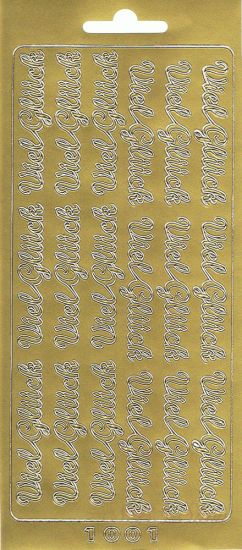 Viel Glück
Viel Glück
Viel Glück
Viel Glück
Viel Glück
Viel Glück
Viel Glück
Viel Glück
Viel Glück
Viel Glück
Viel Glück
Viel Glück
Viel Glück
Viel Glück
Viel Glück
Viel Glück
Viel Glück
Viel Glück
1001